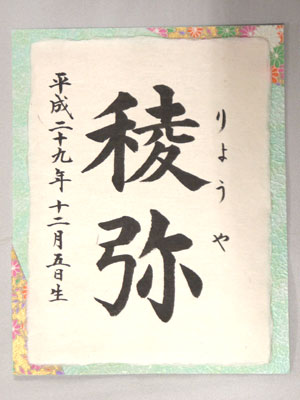 りょうや
稜弥
平成二十九年十二月五日生